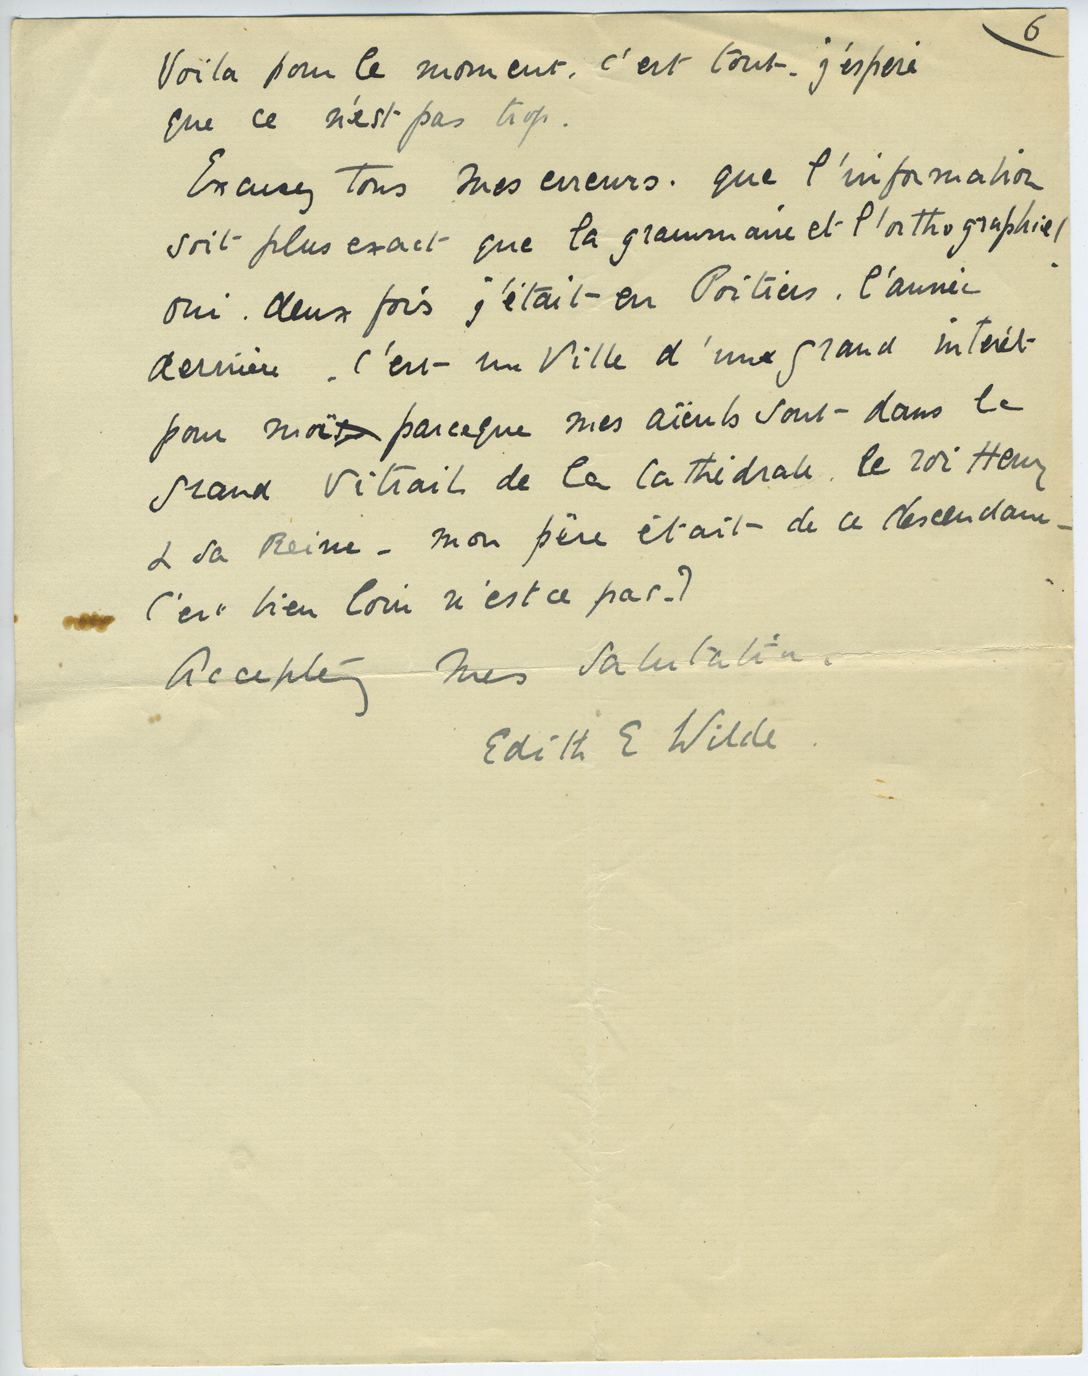 6
Voïla pour le moment. c'est tout. j'éspere
que ce n'ést pas trop.
Excusez tous mes erreurs. que l'information
soit plus exact que la grammaire et l'orthographie!
oui. deux fois j'était en Poitiers. l'année
dernière. C'est un Ville d'une grand intérêt
pour moï parceque mes aïeuls sont dans le
grand Vitrail de la Cathédrale. le roi Henry
& sa Reine - mon père était de ce descendant-
C'est bien loin n'est ce pas?
Acceptéz mes salutation.
Edith E Wilde.